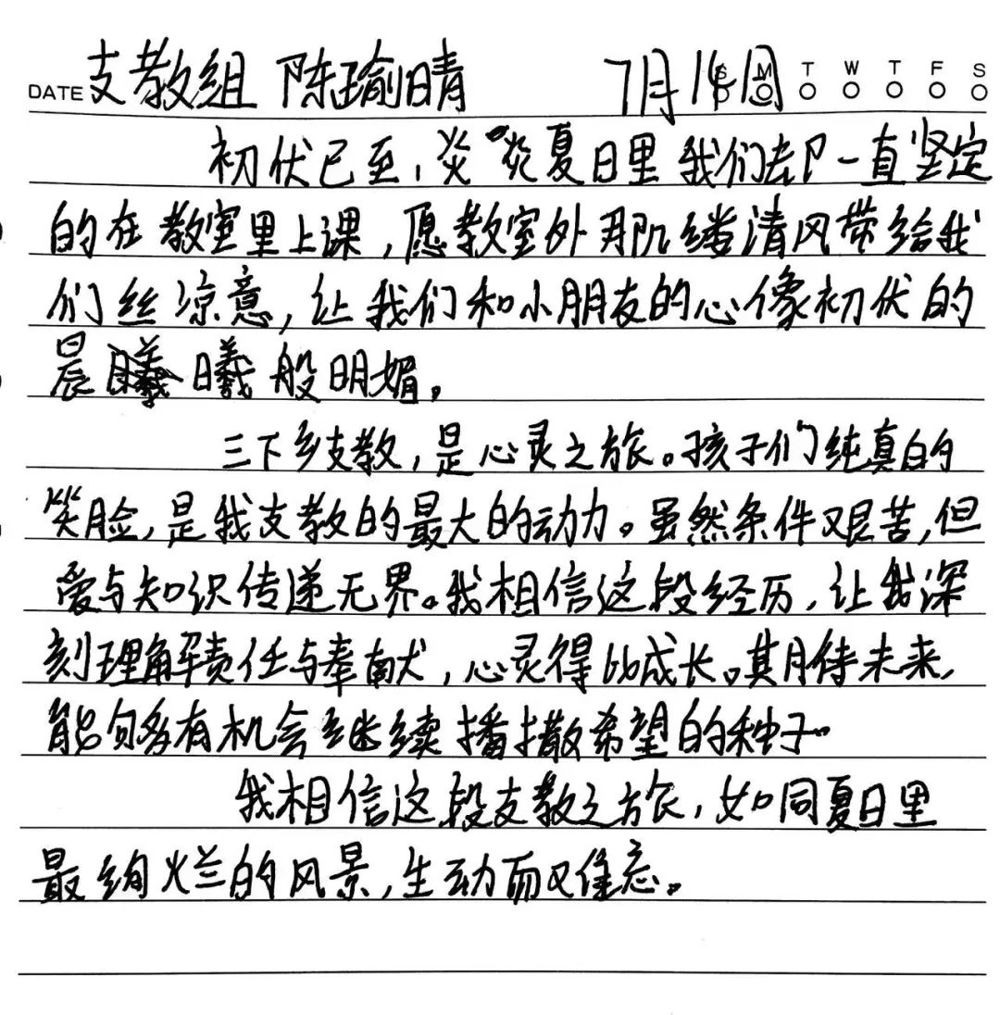 DATE 支教组 陈瑜晴 7月14日 S M T W T F S
初伏已至，炎炎夏日里我们却一直坚定
的在教室里上课，愿教室外那缕清风带给我
们丝凉意，让我们和小朋友的心像初伏的
晨曦般明媚。
三下乡支教，是心灵之旅。孩子们纯真的
笑脸，是我支教的最大的动力。虽然条件艰苦，但
爱与知识传递无界。我相信这段经历，让我深
刻理解责任与奉献，心灵得以成长。期待未来，
能够有机会继续播撒希望的种子…
我相信这段支教之旅，如同夏日里
最绚烂的风景，生动而又难忘。